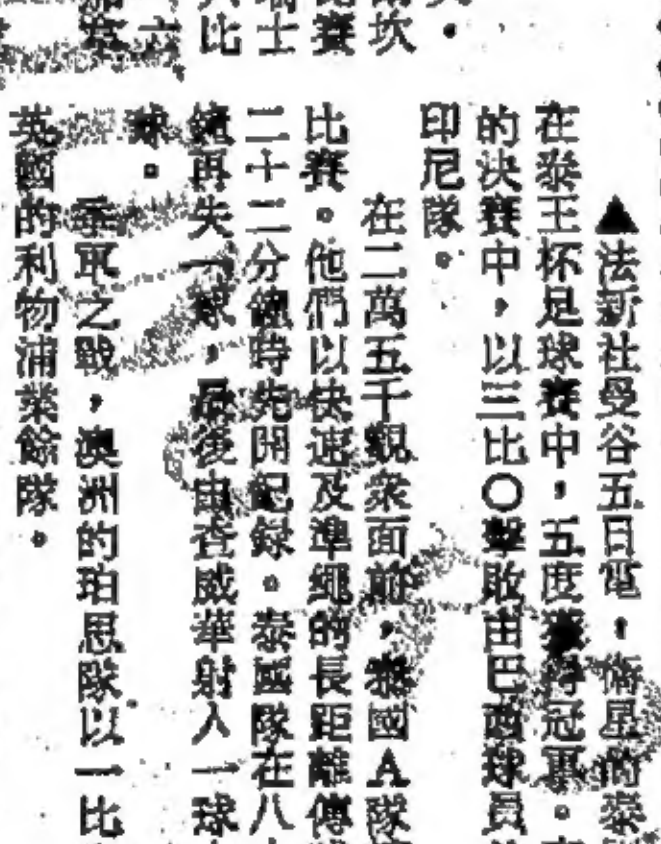 ▲法新社曼谷五日電,衛星的泰
在泰王杯足球賽中,五度獲得冠軍。
的決賽中,以三比○擊敗由巴西球員
印尼隊。
在二萬五千觀衆面前,泰國A隊
比賽。他們以快速及準繩的長距離傳
二十二分鐘時先開紀錄。泰國隊在八
續再失一球,最後由查威華射入一球
球。
季軍之戰,澳洲的珀思隊以一比
英國的利物浦業餘隊。
坎
比賽
士
比
六